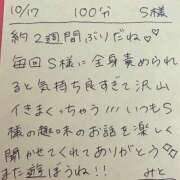 10/17 100分 S様
約2週間ぶりだね♡♡
毎回S様に全身責められ
ると気持ち良すぎて沢山
イきまくっちゃう!!!いつもS
様の趣味のお話を楽しく
聞かせてくれてありがとう♡
また遊ぼうね!! みと